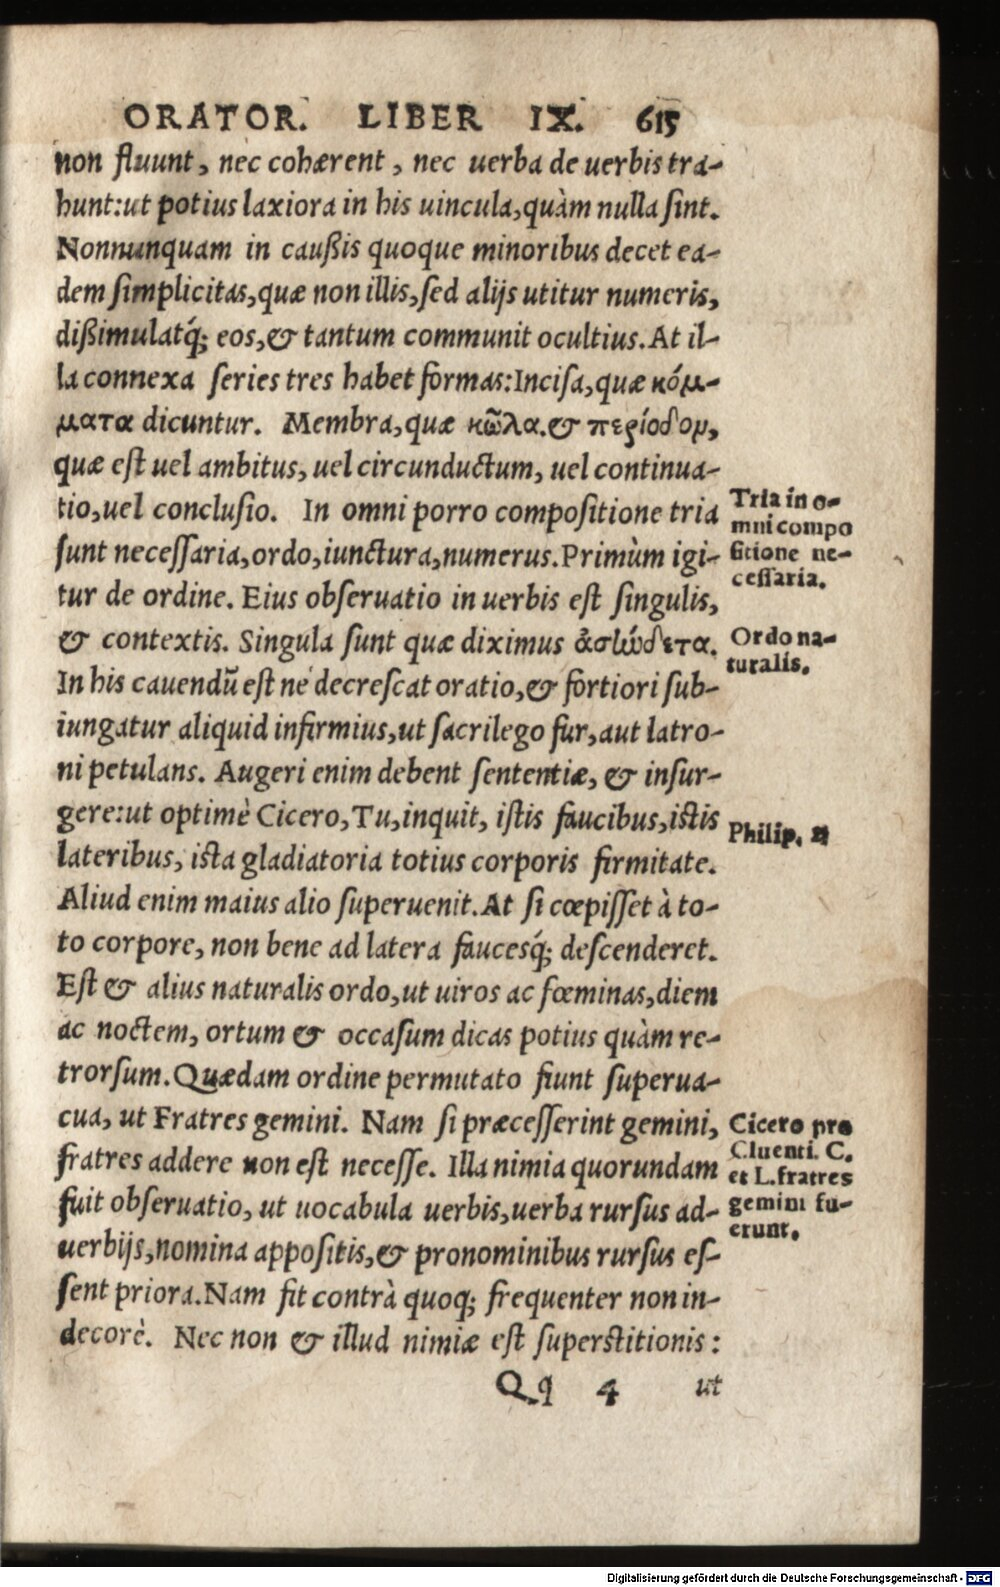 ORATOR. LIBER IX. 615
non fluunt, nec cohærent, nec uerba de uerbis tra-
hunt:ut potius laxiora in his uincula,quàm nulla sint.
Nonnunquam in caußis quoque minoribus decet ea-
dem simplicitas,quæ non illis,sed alijs utitur numeris,
dißimulatq́; eos,& tantum communit ocultius.At il-
la connexa series tres habet formas:Incisa,quæ κόμ-
ματα dicuntur. Membra,quæ κῶλα.& περίοδομ,
quæ est uel ambitus, uel circunductum, uel continua-
tio,uel conclusio. In omni porro compositione tria
sunt necessaria,ordo,iunctura,numerus.Primùm igi-
tur de ordine. Eius obseruatio in uerbis est singulis,
& contextis. Singula sunt quæ diximus ἀσύνδετα.
In his cauendū est ne decrescat oratio,& fortiori sub-
iungatur aliquid infirmius,ut sacrilego fur,aut latro-
ni petulans. Augeri enim debent sententiæ, & insur-
gere:ut optimè Cicero,Tu,inquit, istis faucibus,istis
lateribus, ista gladiatoria totius corporis firmitate.
Aliud enim maius alio superuenit.At si cœpisset à to-
to corpore, non bene ad latera faucesq́; descenderet.
Est & alius naturalis ordo,ut uiros ac fœminas,diem
ac noctem, ortum & occasum dicas potius quàm re-
trorsum.Quædam ordine permutato fiunt superua-
cua, ut Fratres gemini. Nam si præcesserint gemini,
fratres addere non est necesse. Illa nimia quorundam
fuit obseruatio, ut uocabula uerbis,uerba rursus ad-
uerbijs,nomina appositis,& pronominibus rursus es-
sent priora.Nam fit contrà quoq; frequenter non in-
decorè. Nec non & illud nimiæ est superstitionis:
Qq 4 ut
Tria in o-
mni compo
sitione ne-
cessaria.
Ordo na-
turalis.
Philip. 2
Cicero pro
Cluenti. C.
et L.fratres
gemini fu-
erunt.
Digitalisierung gefördert durch die Deutsche Forschungsgemeinschaft - DFG